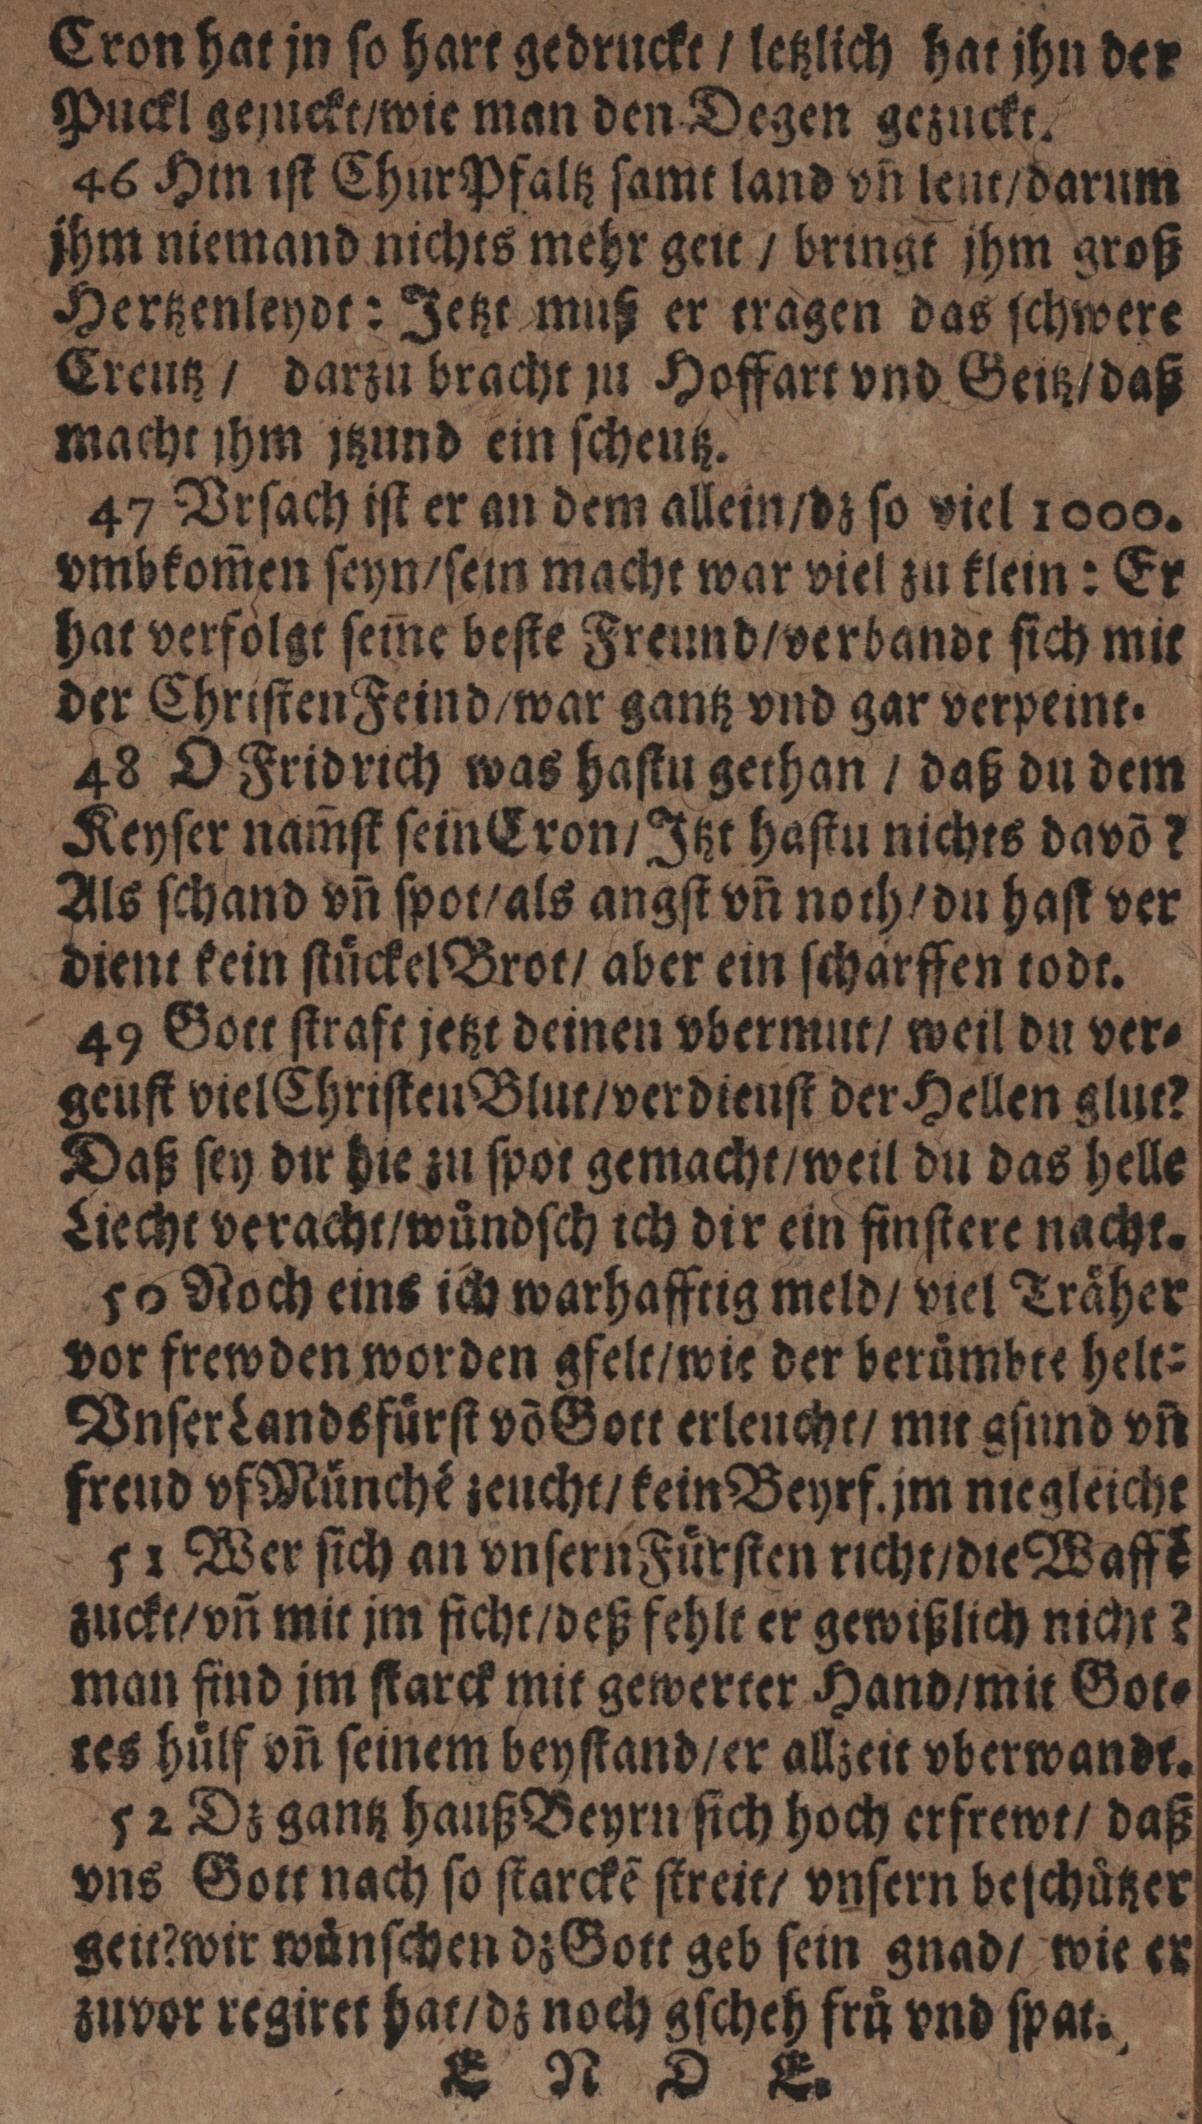 Cron hat jn so hart gedruckt / letzlich hat jhn der
Puckl gejuckt/wie man den Degen gezuckt.
46 Hin ist ChurPfaltz samt land vn̄ leut/darum
jhm niemand nichts mehr geit / bringt jhm groß
Hertzenleydt: Jetzt muß er tragen das schwere
Creutz / darzu bracht jn Hoffart vnd Geitz/daß
macht jhm jtzund ein scheutz.
47 Vrsach ist er an dem allein/dz so viel 1000.
vmbkom̄en seyn/sein macht war viel zu klein: Er
hat verfolgt sein̄e beste Freund/verbandt sich mit
der ChristenFeind/war gantz vnd gar verpeint.
48 O Fridrich was hastu gethan / daß du dem
Keyser nam̄st seinCron/Jtzt hastu nichts davō?
Als schand vn̄ spot/als angst vn̄ noth/du hast ver
dient kein stuͤckelBrot/ aber ein scharffen todt.
49 Gott straft jetzt deinen vbermut/ weil du ver-
geust vielChristenBlut/verdienst derHellen glut?
Daß sey dir hie zu spot gemacht/weil du das helle
Liecht veracht/wuͤndsch ich dir ein finstere nacht.
50 Noch eins ich warhafftig meld/ viel Traͤher
vor frewden worden gfelt/wie der beruͤmbte helt:
VnserLandsfuͤrst vōGott erleucht/ mit gsund vn̄
freud vfMuͤnchē zeucht/keinBeyrf.jm nie gleicht
51 Wer sich an vnsernFuͤrsten richt/dieWaffē
zuckt/vn̄ mit jm ficht/deß fehlt er gewißlich nicht?
man find jm starck mit gewerter Hand/mit Got-
tes huͤlf vn̄ seinem beystand/er allzeit vberwandt.
52 Dz gantz haußBeyrn sich hoch erfrewt/ daß
vns Gott nach so starckē streit/ vnsern beschuͤtzer
geit?wir wuͤnschen dzGott geb sein gnad/ wie er
zuvor regiret hat/dz noch gscheh fruͤ vnd spat.
E N D E.